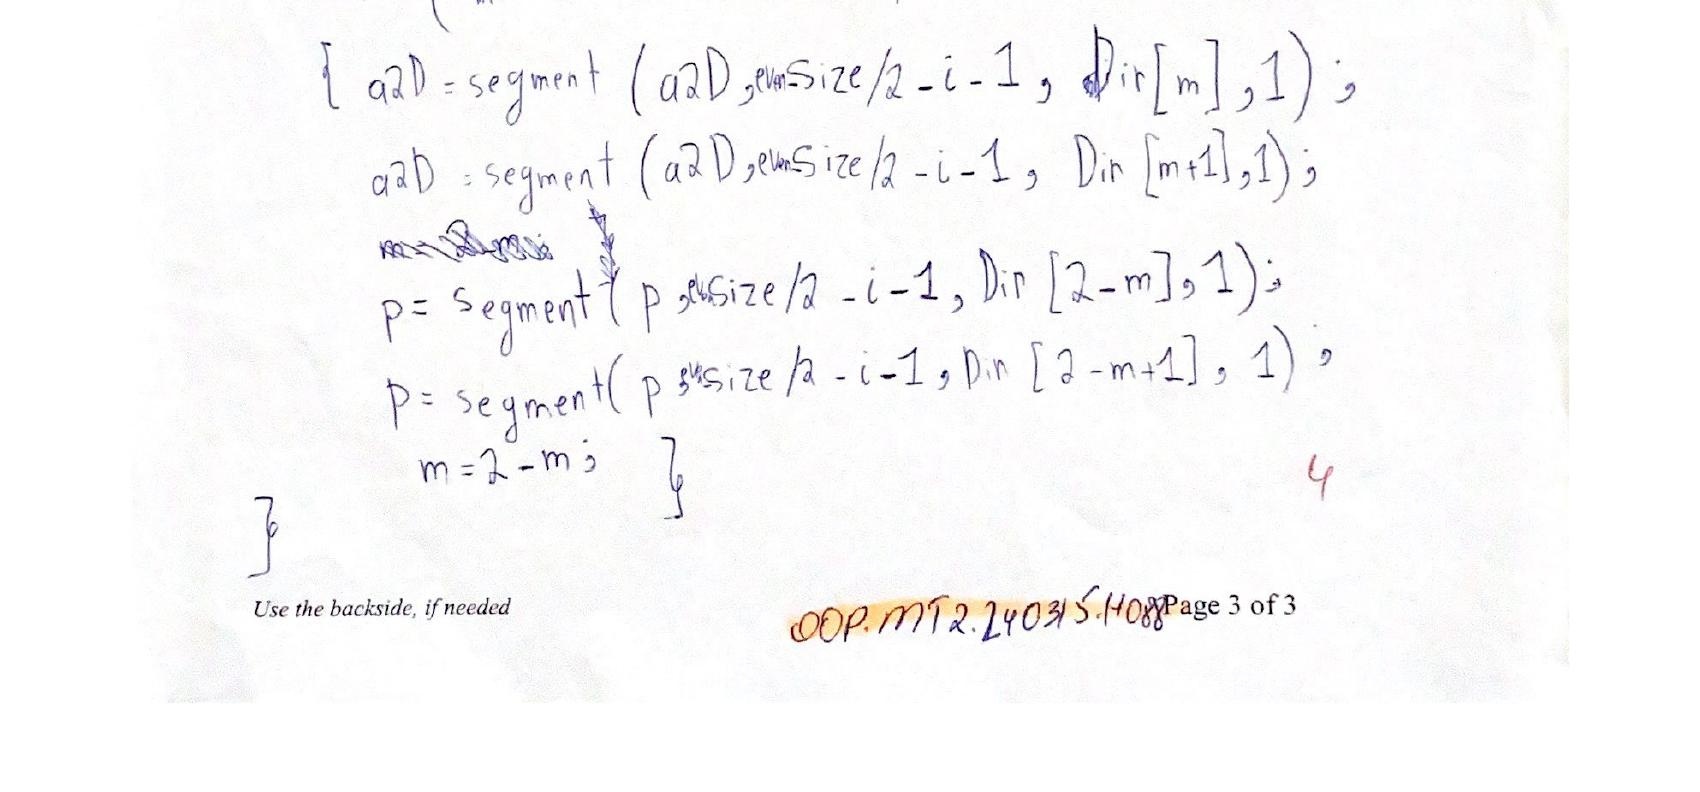 { a2D = segment (a2D, evenSize/2 - i - 1, Dir[m], 1);
a2D = segment (a2D, evenSize/2 - i - 1, Dir [m+1], 1);
p = segment ( p, evenSize/2 - i - 1, Dir [2-m], 1);
p = segment( p, evenSize/2 - i - 1, Dir [2-m+1], 1);
m = 2 - m; }
4
}
Use the backside, if needed
OOP.MT2.240315.H088 Page 3 of 3